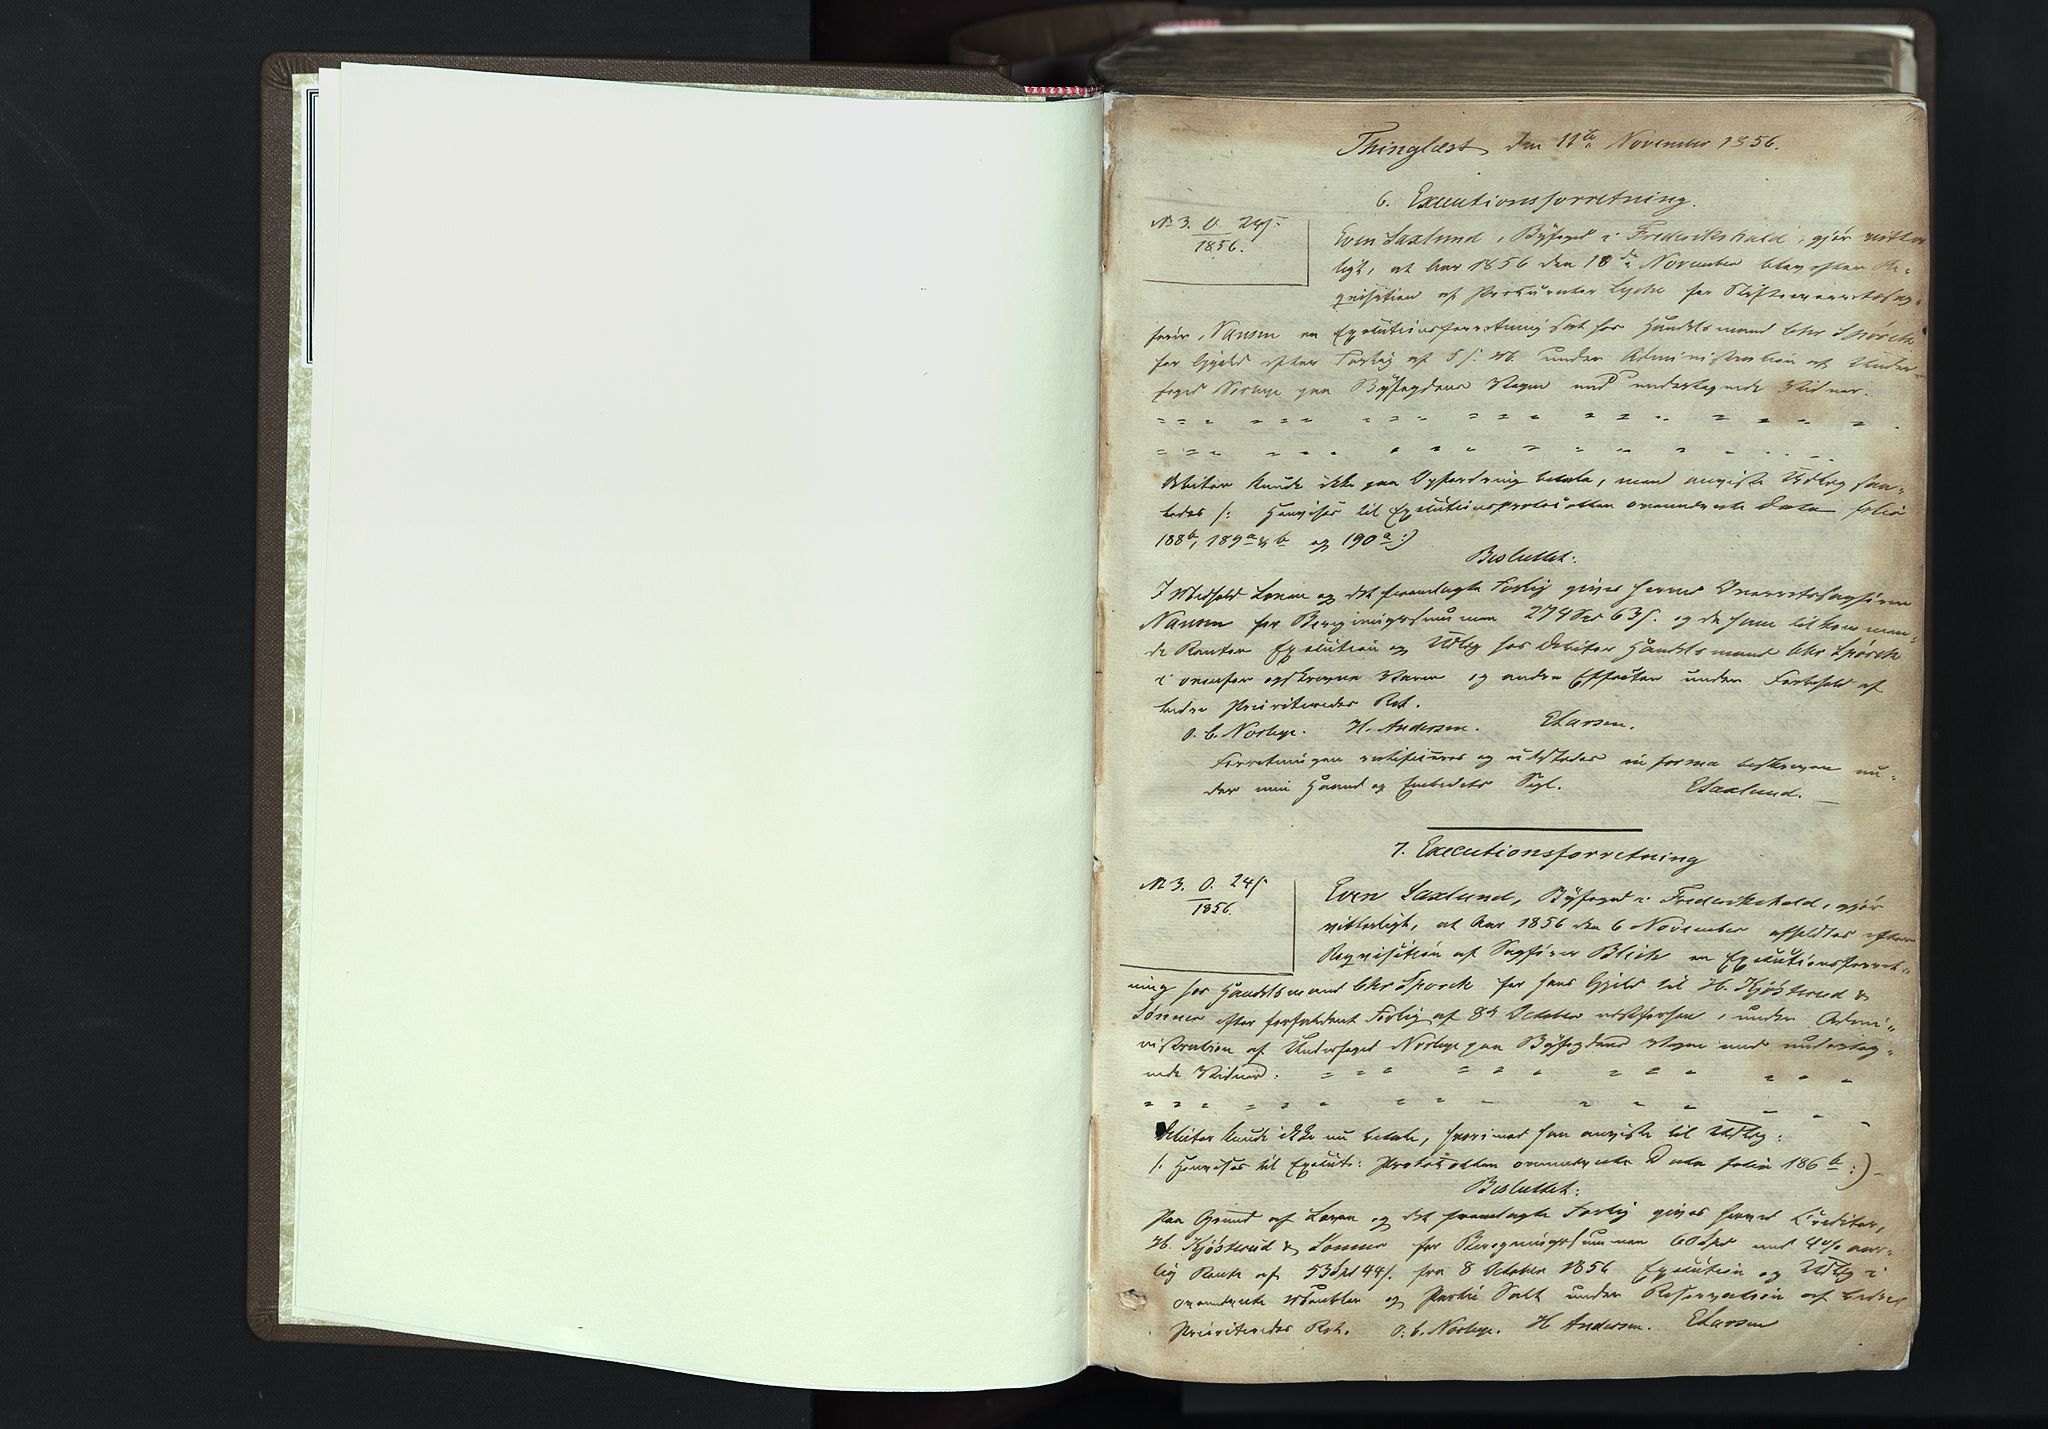 Thinglæst den 11te November 1856.
6. Executionsforretning.
No 3. O. 24s
1856.
Even Saxlund, Byfoged i Frederikshald, gjør vitter
ligt, at Aar 1856 den 10de November blev efter Re-
quisition af Procurator Lyche for Overretssag-
fører Nansen en Executionsforretning sat hos Handelsmand Chr Spørck
for Gjæld efter Forlig af under Administration af Under-
foged Norbye paa Byfogdens Vegne med undertegnede Vidner.
Debitor kunde ikke paa Opfordring betale, men anviste Udlæg saa-
ledes /: Henvises til Executionsprotocollen ovennævnte Data folio
188b, 189a & b og 190a :)
Besluttet:
I Medhold Loven og det fremlagte Forlig gives herved Overretssagfører
Nansen for Beregningssummen 274 Spd 63s. og de heraf tilkommen-
de Renter Execution og Udlæg hos Debitor Handelsmand Chr Spørck
i ovenfor opskrevne Varer og andre Effecter under Forbehold af
bedre Prioriteredes Ret.
O. C. Norbye. H. Andersen. E Larsen.
Forretningen ratificeres og udstedes in forma beskreven un-
der min Haand og Embedets Segl. E Saxlund.
7. Executionsforretning
No 3. O. 24s
1856.
Even Saxlund, Byfoged i Frederikshald, gjør
vitterligt, at Aar 1856 den 6 November afholdtes efter
Requisition af Sagfører Blich en Executionsforret-
ning hos Handelsmand Chr Spørck for hans Gjæld til H. Kjøsterud &
Sønner efter forfaldent Forlig af 8de October næstforhen, under Admi-
nistration af Underfoged Norbye paa Byfogdens Vegne med underteg-
nede Vidner:
Debitor kunde ikke nu betale, hvorimod han anviste til Udlæg:
/: Henvises til Execut: Protocollen ovennævnte Data folio 186b :)
Besluttet:
Paa Grund af Loven og det fremlagte Forlig gives herved Creditor,
H. Kjøsterud & Sønner for Beregningssummen 60 Spd med 4% aar-
lig Rente af 53 Spd 44s. fra 8 October 1856 Execution og Udlæg i
ovennævnte Meubler og Partie Salt under Reservation af bedre
Prioriteredes Ret. O. C. Norbye. H Andersen. E Larsen